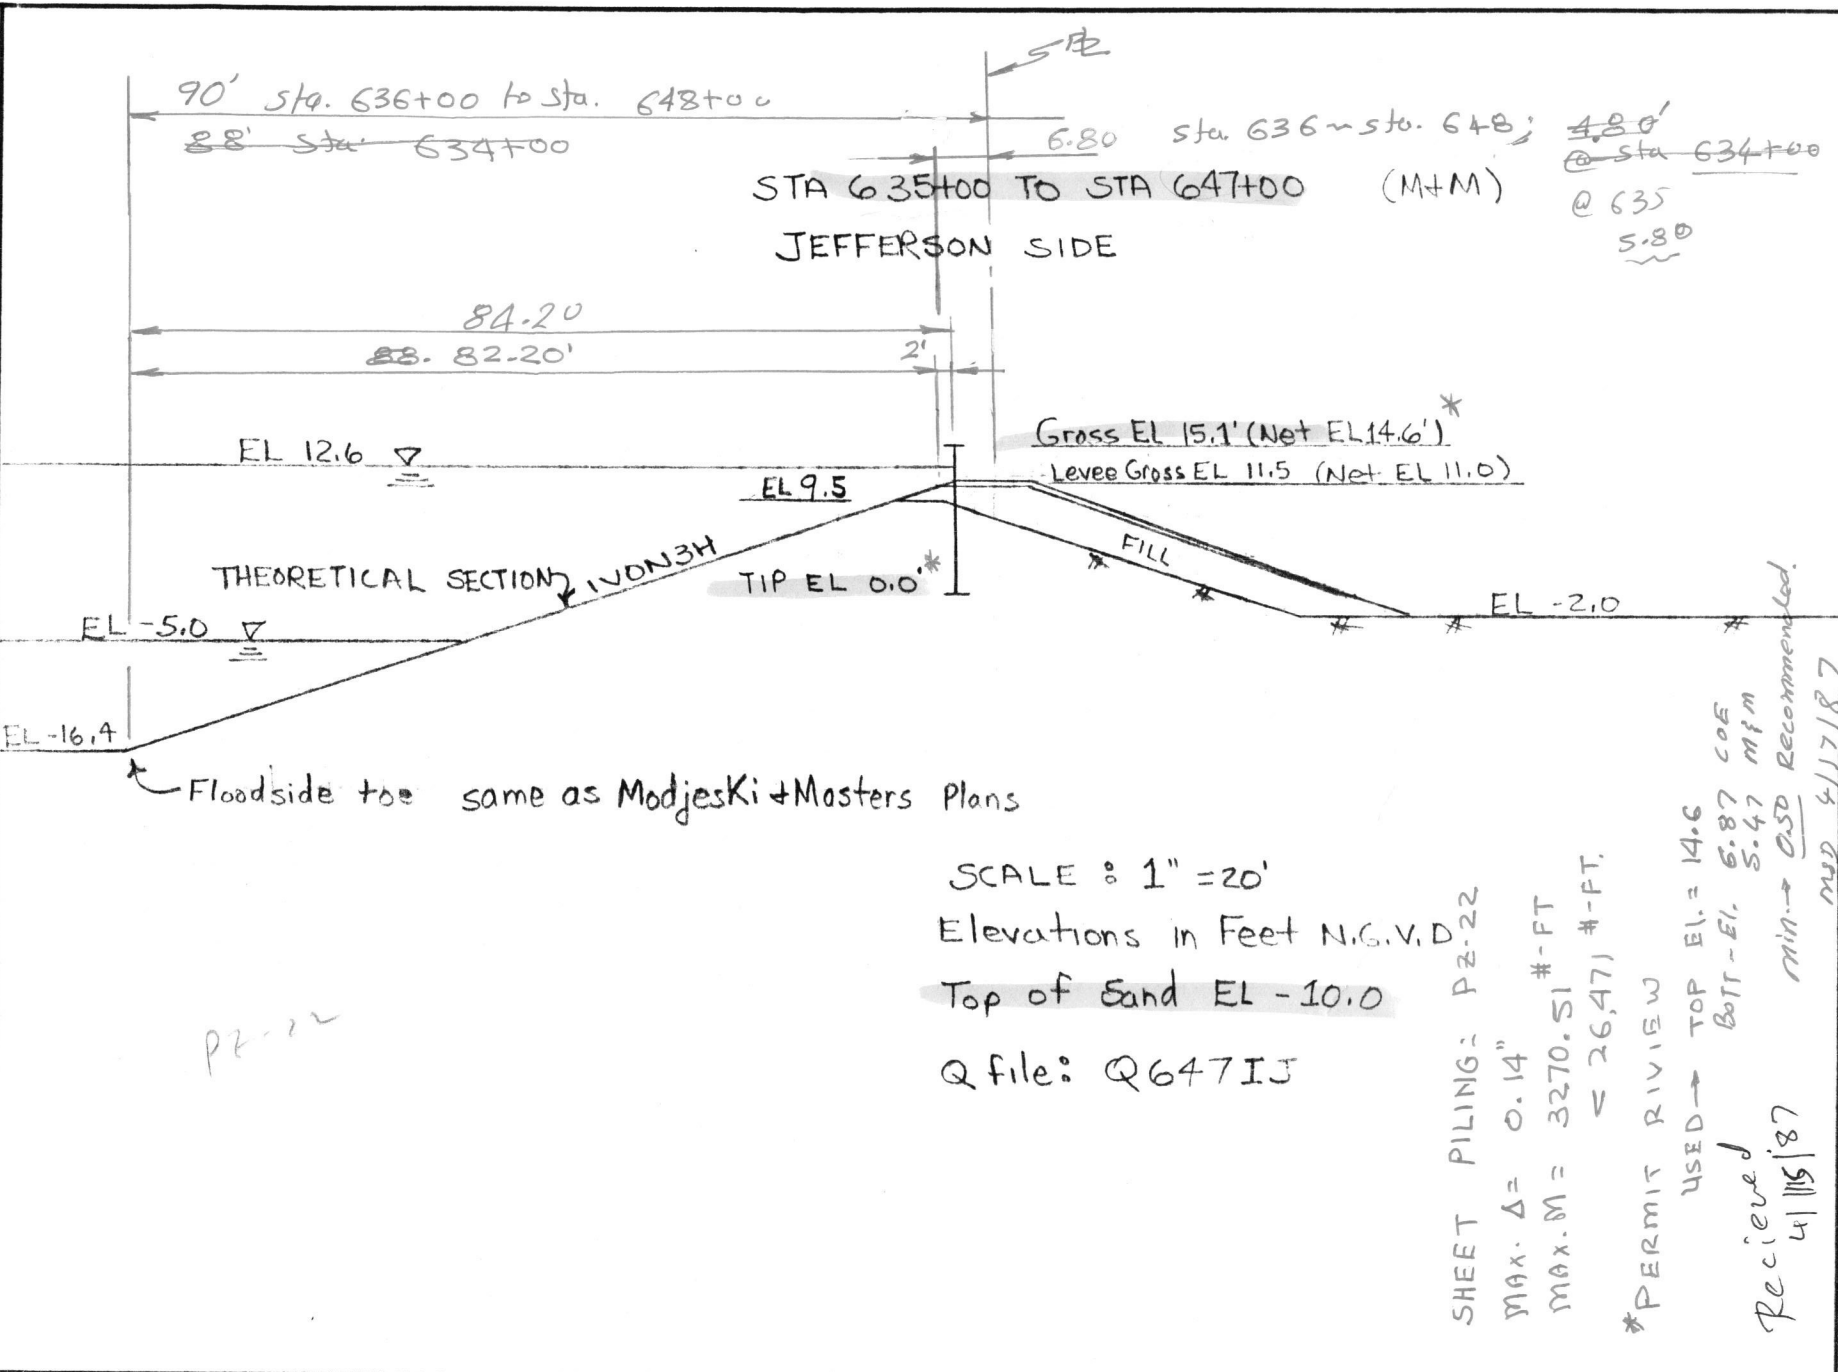 90' sta. 636+00 to sta. 648+00
88' sta 634+00
6.80 sta. 636 ~ sta. 648; 4.80'
@ sta 634+00
STA 635+00 TO STA 647+00 (M+M)
@ 635
5.80
JEFFERSON SIDE
84.20
88. 82.20' 2'
Gross EL 15.1' (Net EL 14.6') *
EL 12.6
Levee Gross EL 11.5 (Net EL 11.0)
EL 9.5
1VON3H
FILL
THEORETICAL SECTION
TIP EL 0.0' *
EL -2.0
EL -5.0
EL -16.4
Floodside toe same as Modjeski + Masters Plans
SCALE : 1" = 20'
Elevations in Feet N.G.V.D
Top of Sand EL - 10.0
Q file: Q647IJ
PZ-22
SHEET PILING: PZ-22
MAX. Δ = 0.14"
MAX. M = 3270.51 #-FT
= 26,471 #-FT.
*PERMIT RIVIEW
USED → TOP El. = 14.6
BOTT-El. 6.87 COE
5.47 M&M
min. → 0.50 Recommended.
4/17/87
Recieved